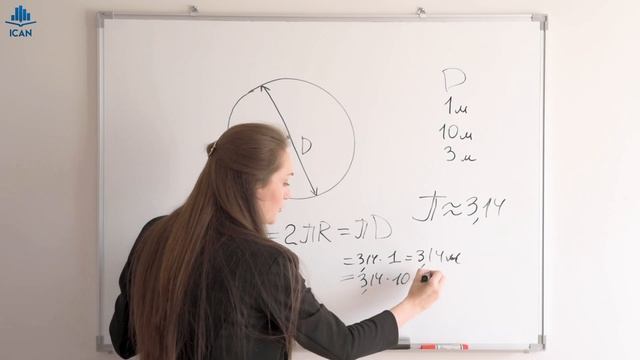 ICAN
D
D
1м
10м
3м
π≈3,14
=2πR=πD
=3,14·1=3,14м
=3,14·10